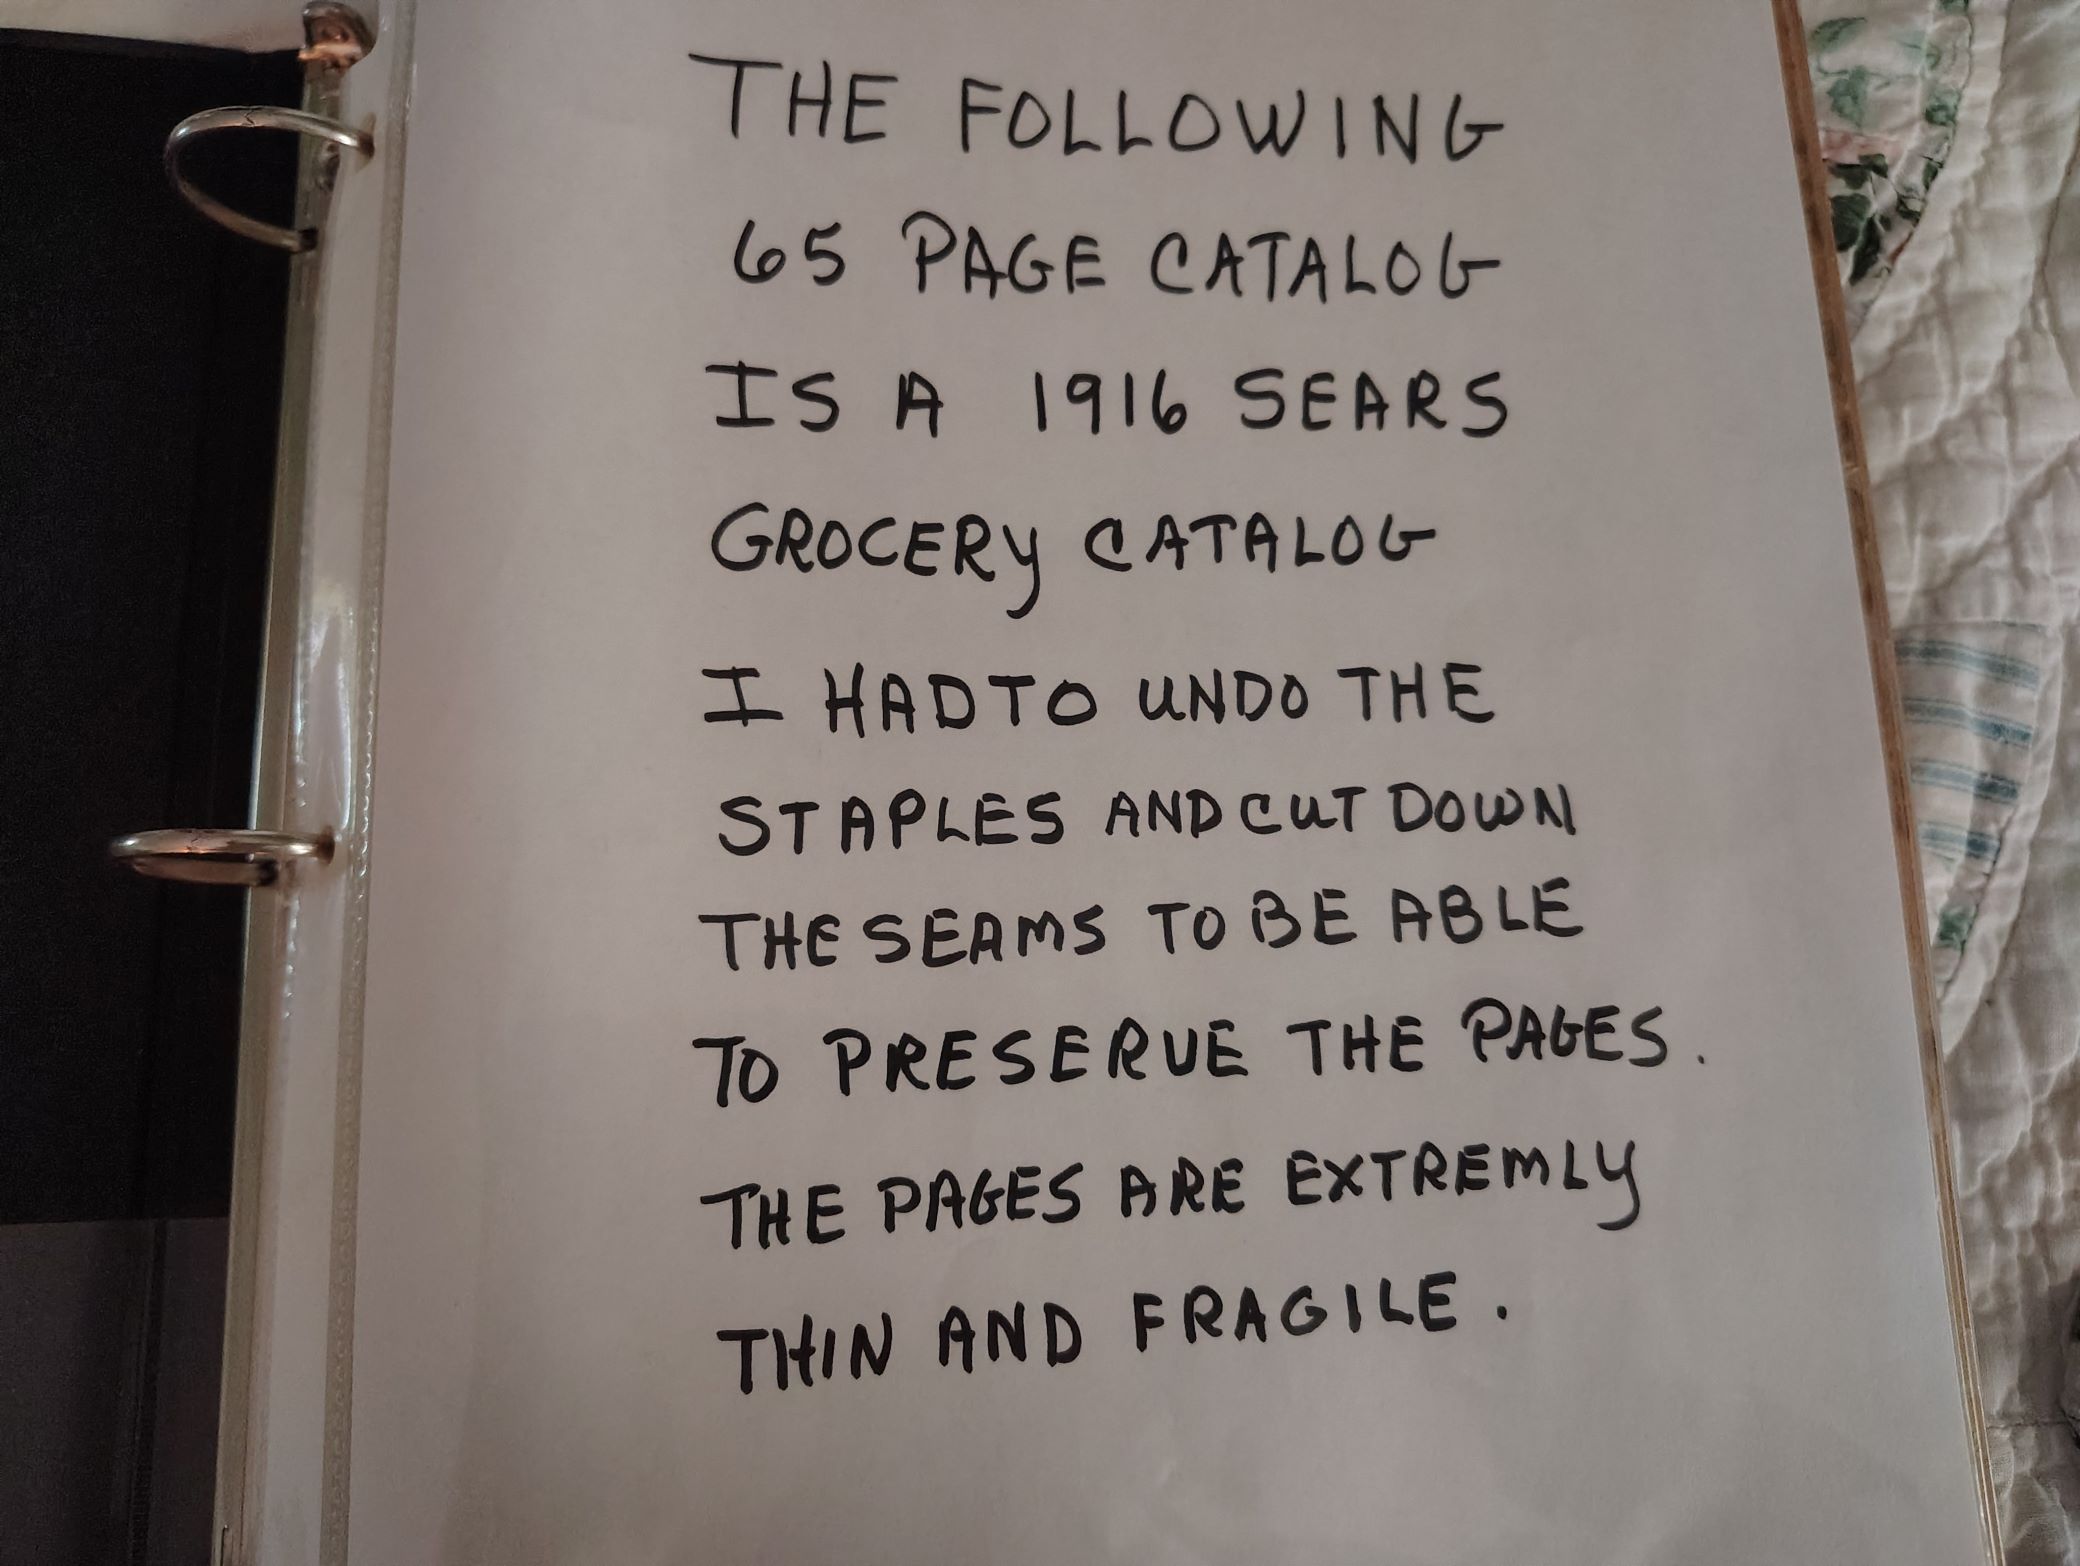 THE FOLLOWING
65 PAGE CATALOG
IS A 1916 SEARS
GROCERY CATALOG
I HAD TO UNDO THE
STAPLES AND CUT DOWN
THE SEAMS TO BE ABLE
TO PRESERVE THE PAGES.
THE PAGES ARE EXTREMLY
THIN AND FRAGILE.